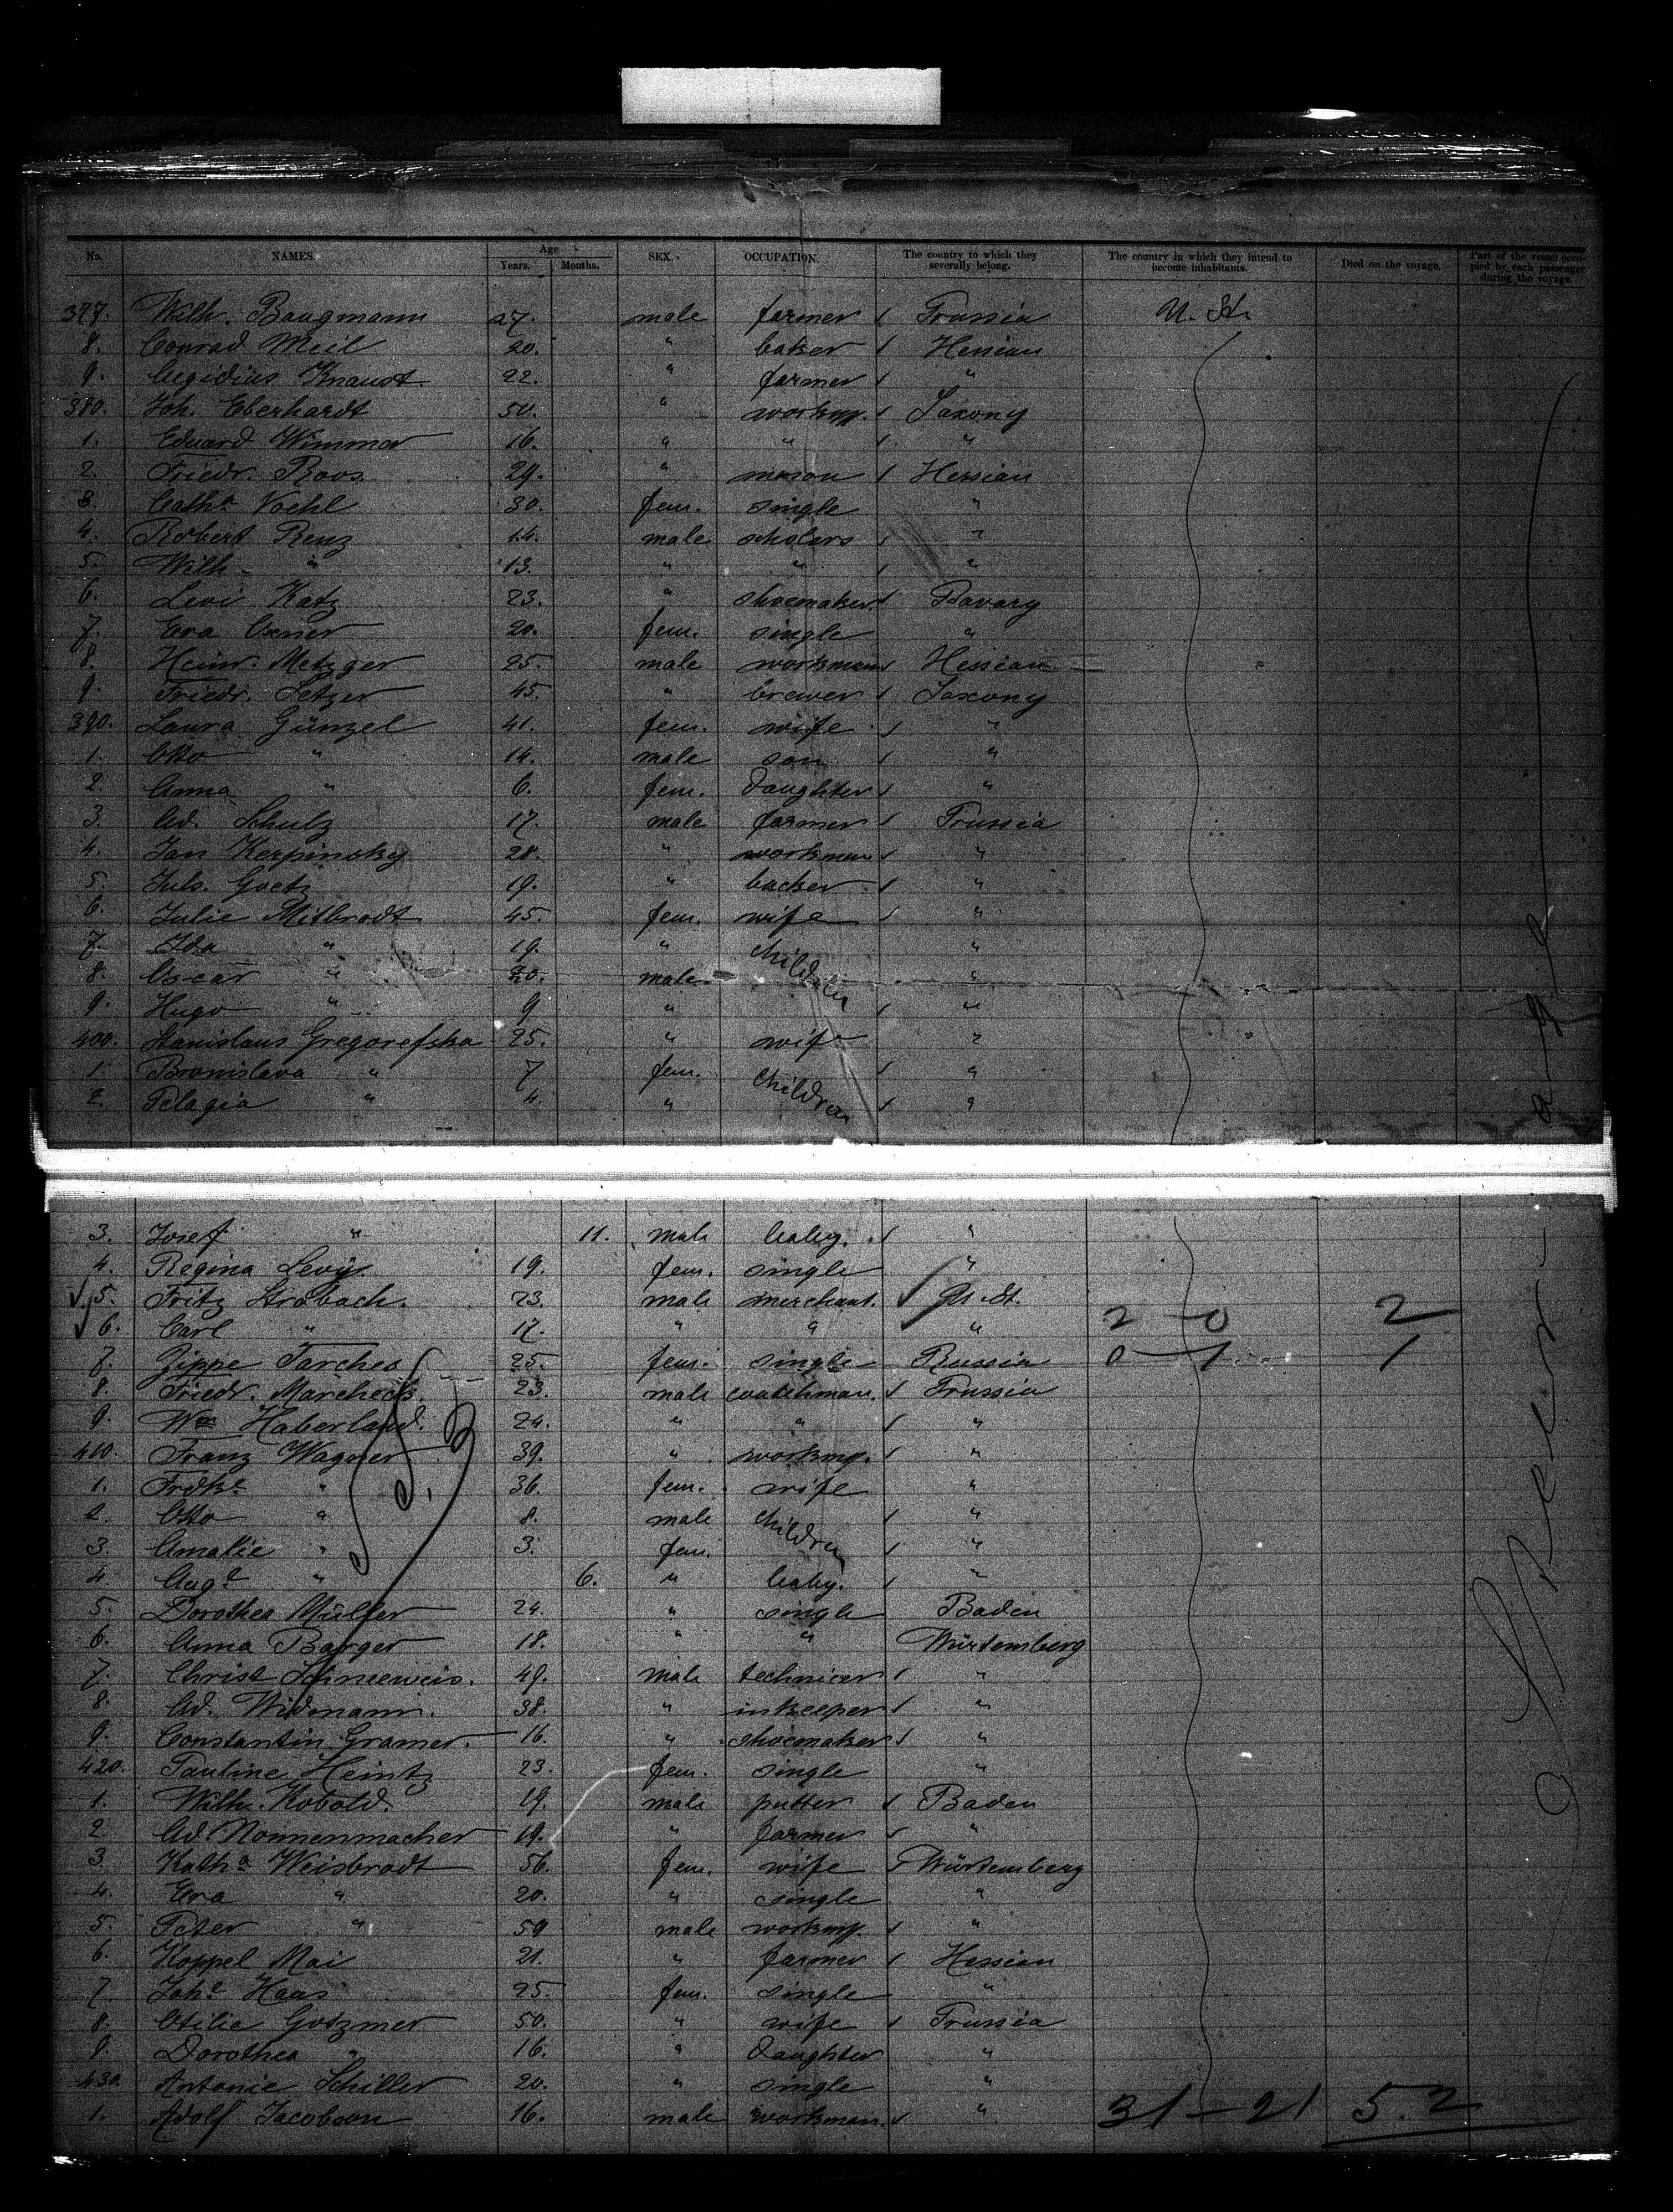 No. NAMES. Age Years. Months. SEX. OCCUPATION. The country to which they severally belong. The country in which they intend to become inhabitants. Died on the voyage. Part of the vessel occupied by each passenger during the voyage.
377. Wilh. Baugmann 27. male farmer Prussia U. St.
8. Conrad Meil 20. " baker Hessian
9. Aegidius Knaust 22. " farmer "
380. Joh. Eberhardt 50. " workm. Saxony
1. Eduard Wimmer 16. " " "
2. Friedr. Roos 29. " mason Hessian
3. Catha Voehl 30. fem. single "
4. Robert Renz 14. male scholars "
5. Wilh. " 13. " " "
6. Levi Katz 23. " shoemaker Bavary
7. Eva Oxner 20. fem. single "
8. Heinr. Metzger 25. male workman Hessian
9. Friedr. Setzer 45. " brewer Saxony
390. Laura Günzel 41. fem. wife "
1. Otto " 14. male son "
2. Anna " 6. fem. daughter "
3. Ad. Schulz 17. male farmer Prussia
4. Jan Kerpinsky 28. " workman "
5. Juls. Goetz 19. " backer "
6. Julie Mitbrodt 45. fem. wife "
7. Ida " 19. " children "
8. Oscar " 20. male "
9. Hugo " 9 " "
400. Stanislaus Gregorefska 25. " wife "
1. Bronislava " 7 fem. children "
2. Pelagia " 4. " "
3. Josef " 11. male baby. "
4. Regina Levy. 19. fem. single "
5. Fritz Strobach. 23. male merchant. U. St. 2 0 2
6. Carl " 17. " " "
7. Zippe Tarches 25. fem. single Russia 0 1 1
8. Friedr. Marcheck. 23. male coatchman. Prussia
9. Wm Haberland. 24. " " "
410. Franz Wagner 39. " workm. "
1. Frdke " 36. fem. wife "
2. Otto " 8. male children "
3. Amalie " 3. fem. "
4. Auge " 6. " baby. "
5. Dorothea Müller 24. " single Baden
6. Anna Barger 18. " " Würtemberg
7. Christ Schneeweis. 49. male technicer "
8. Ad. Widmann. 38. " inkeeper "
9. Constantin Gramer. 16. " shoemaker "
420. Pauline Heintz 23. fem. single "
1. Wilh. Kobold. 19. male putter Baden
2 Ad. Nonnenmacher 19. " farmer "
3. Katha Weisbrodt 56. fem. wife Würtemberg
4. Eva " 20. " single "
5. Peter " 59 male workm. "
6. Koppel Mai 21. " farmer Hessian
7. Johe Haas 25. fem. single "
8. Otilie Gotzmer 50. " wife Prussia
9. Dorothea " 16. " daughter "
430. Antonie Schiller 20. " single "
1. Adolf Jacobson 16. male workman. " 31 - 21 52